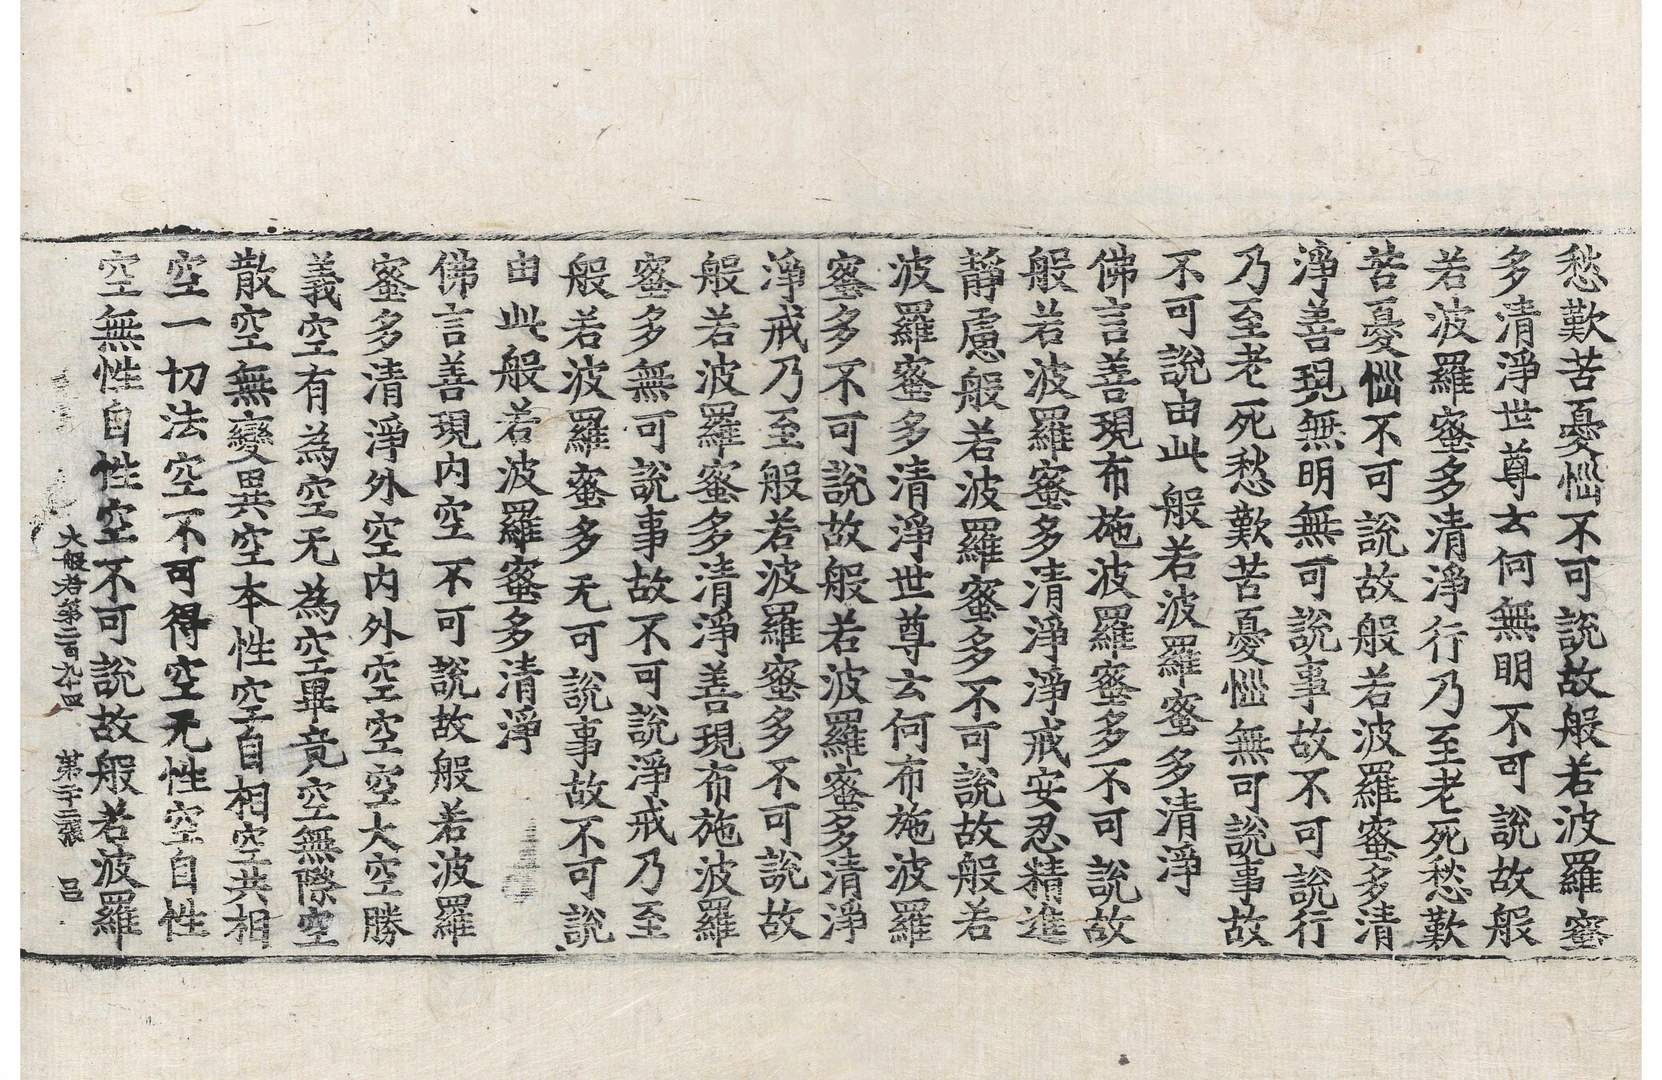 愁歎苦憂惱不可說故般若波羅蜜
多清淨世尊云何無明不可說故般
若波羅蜜多清淨行乃至老死愁歎
苦憂惱不可說故般若波羅蜜多清
淨善現無明無可說事故不可說行
乃至老死愁歎苦憂惱無可說事故
不可說由此般若波羅蜜多清淨
佛言善現布施波羅蜜多不可說故
般若波羅蜜多清淨淨戒安忍精進
靜慮般若波羅蜜多不可說故般若
波羅蜜多清淨世尊云何布施波羅
蜜多不可說故般若波羅蜜多清淨
淨戒乃至般若波羅蜜多不可說故
般若波羅蜜多清淨善現布施波羅
蜜多無可說事故不可說淨戒乃至
般若波羅蜜多无可說事故不可說
由此般若波羅蜜多清淨
佛言善現內空不可說故般若波羅
蜜多清淨外空內外空空空大空勝
義空有為空无為空畢竟空無際空
散空無變異空本性空自相空共相
空一切法空不可得空无性空自性
空無性自性空不可說故般若波羅
大般若第二百九十四 第二十二張 邑